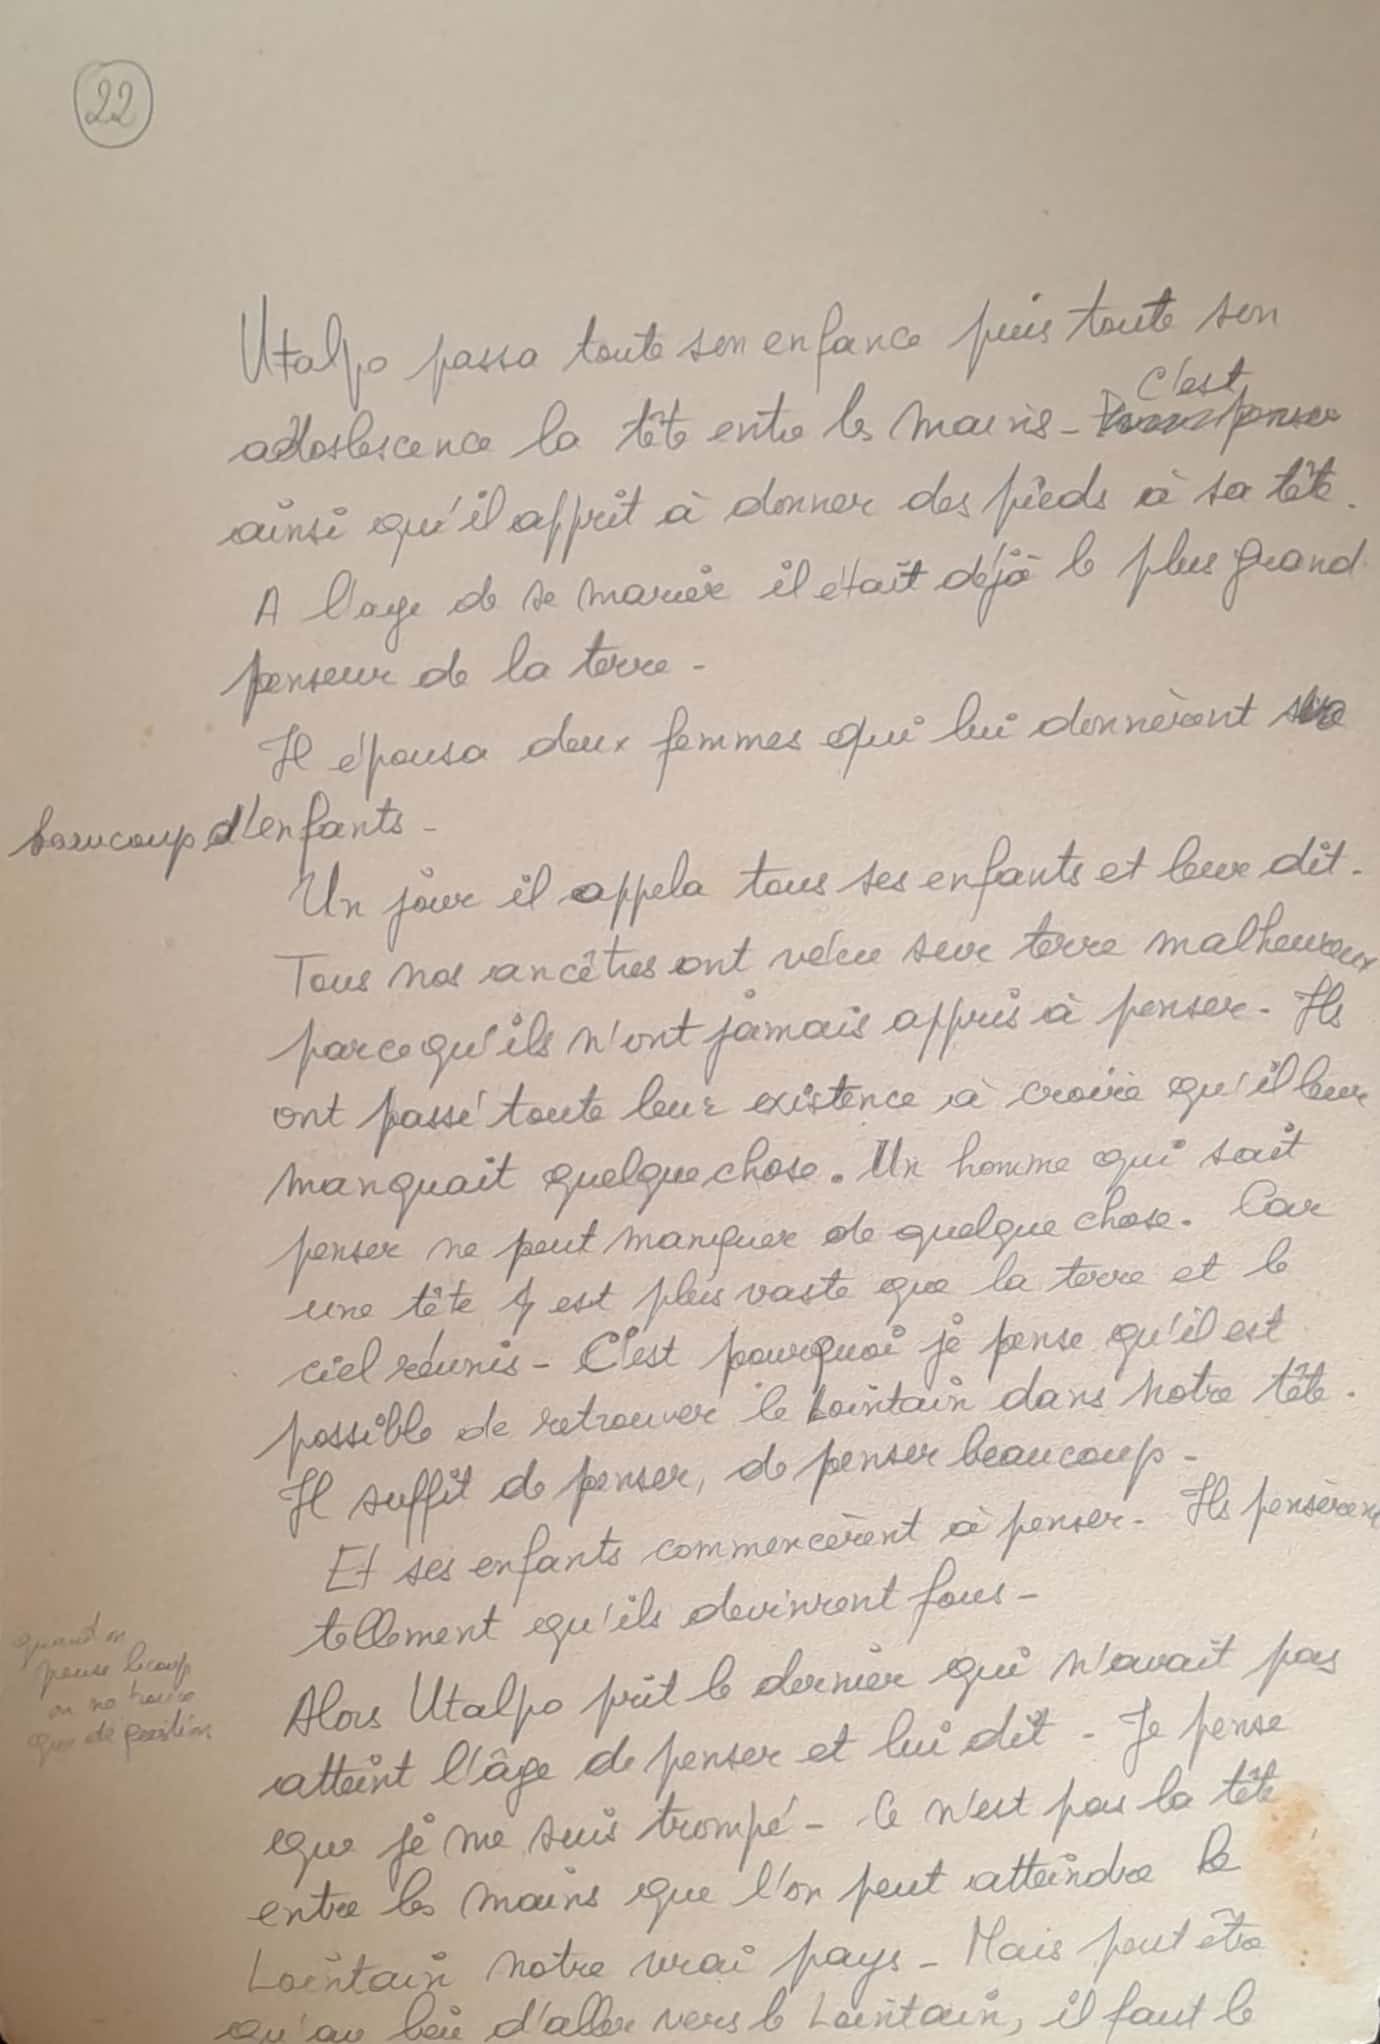 22
Utalpo passa toute son enfance puis toute son
adoslescence la tête entre les mains - C'est
ainsi qu'il apprit à donner des pieds à sa tête.
A l'age de se marier il était déjà le plus grand
penseur de la terre -
Il épousa deux femmes qui lui donnèrent
beaucoup d'enfants -
Un jour il appela tous ses enfants et leur dit -
Tous nos ancêtres ont vécu sur terre malheureux
parcequ'ils n'ont jamais appris à penser - Ils
ont passé toute leur existence à croire qu'il leur
manquait quelque chose. Un homme qui sait
penser ne peut manquer de quelque chose. Car
une tête est plus vaste que la terre et le
ciel réunis - C'est pourquoi je pense qu'il est
possible de retrouver le Lointain dans notre tête.
Il suffit de penser, de penser beaucoup -
Et ses enfants commencèrent à penser - Ils pensèrent
tellement qu'ils devinrent fous -
quand on
pense bcoup
on ne trouve
que de questions
Alors Utalpo prit le dernier qui n'avait pas
atteint l'âge de penser et lui dit - Je pense
que je me suis trompé - Ce n'est pas la tête
entre les mains que l'on peut atteindre le
Lointain notre vrai pays - Mais peut être
qu'au lieu d'aller vers le Lointain, il faut le